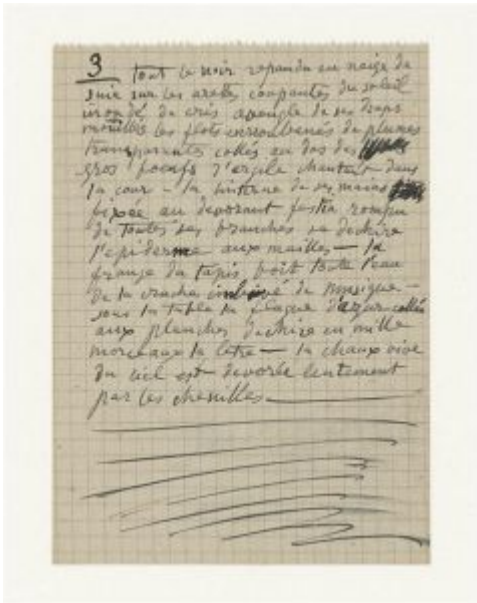 3 Tout le noir repandu en neige de
suie sur les aretes coupantes du soleil
de cris aveugle de ses draps
mouillés les flots enrubannés de plumes
transparentes collés au dos des
gros poings d'argile chantent dans
la cour – la lanterne de ses mains
fixée au devorant festin rompu
de toutes ses branches se dechire
l'epiderme aux mailles – la
frange du tapis boit toute l'eau
de la cruche de musique –
sous la table la flaque d'azur collée
aux planches dechire en mille
morceaux la lettre – la chaux vive
du ciel est devorée lentement
par les chenilles